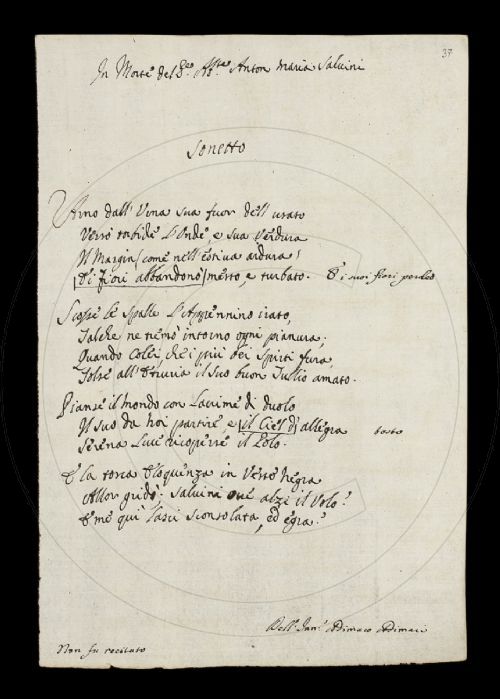 37
In Morte del Sr. Abte. Anton Maria Salvini
Sonetto
L'Arno dall'Urna sua fuor dell'usato
Versò torbide l'Onde, e sua Verdura
Il Margin, come nell'estiva arsura,
Di fiori abbandonò mesto, e turbato. E i suoi fiori perdeo
Scosse le Spalle l'Appennino irato,
Talchè ne tremò intorno ogni pianura;
Quando Colei, che i più bei Spirti fura,
Tolse all'Etruria il suo buon Tullio amato.
Pianse il mondo con Lacrime di duolo
Il suo da noi partire e il Ciel d'allegra tosto
Serena Luce ricoperse il Polo.
E la tosca Eloquenza in Veste negra
Allor gridò: Salvini ove alzi il Volo?
E me qui lasci sconsolata, ed egra?
Dell' Adimaro Adimari
Non fu recitato